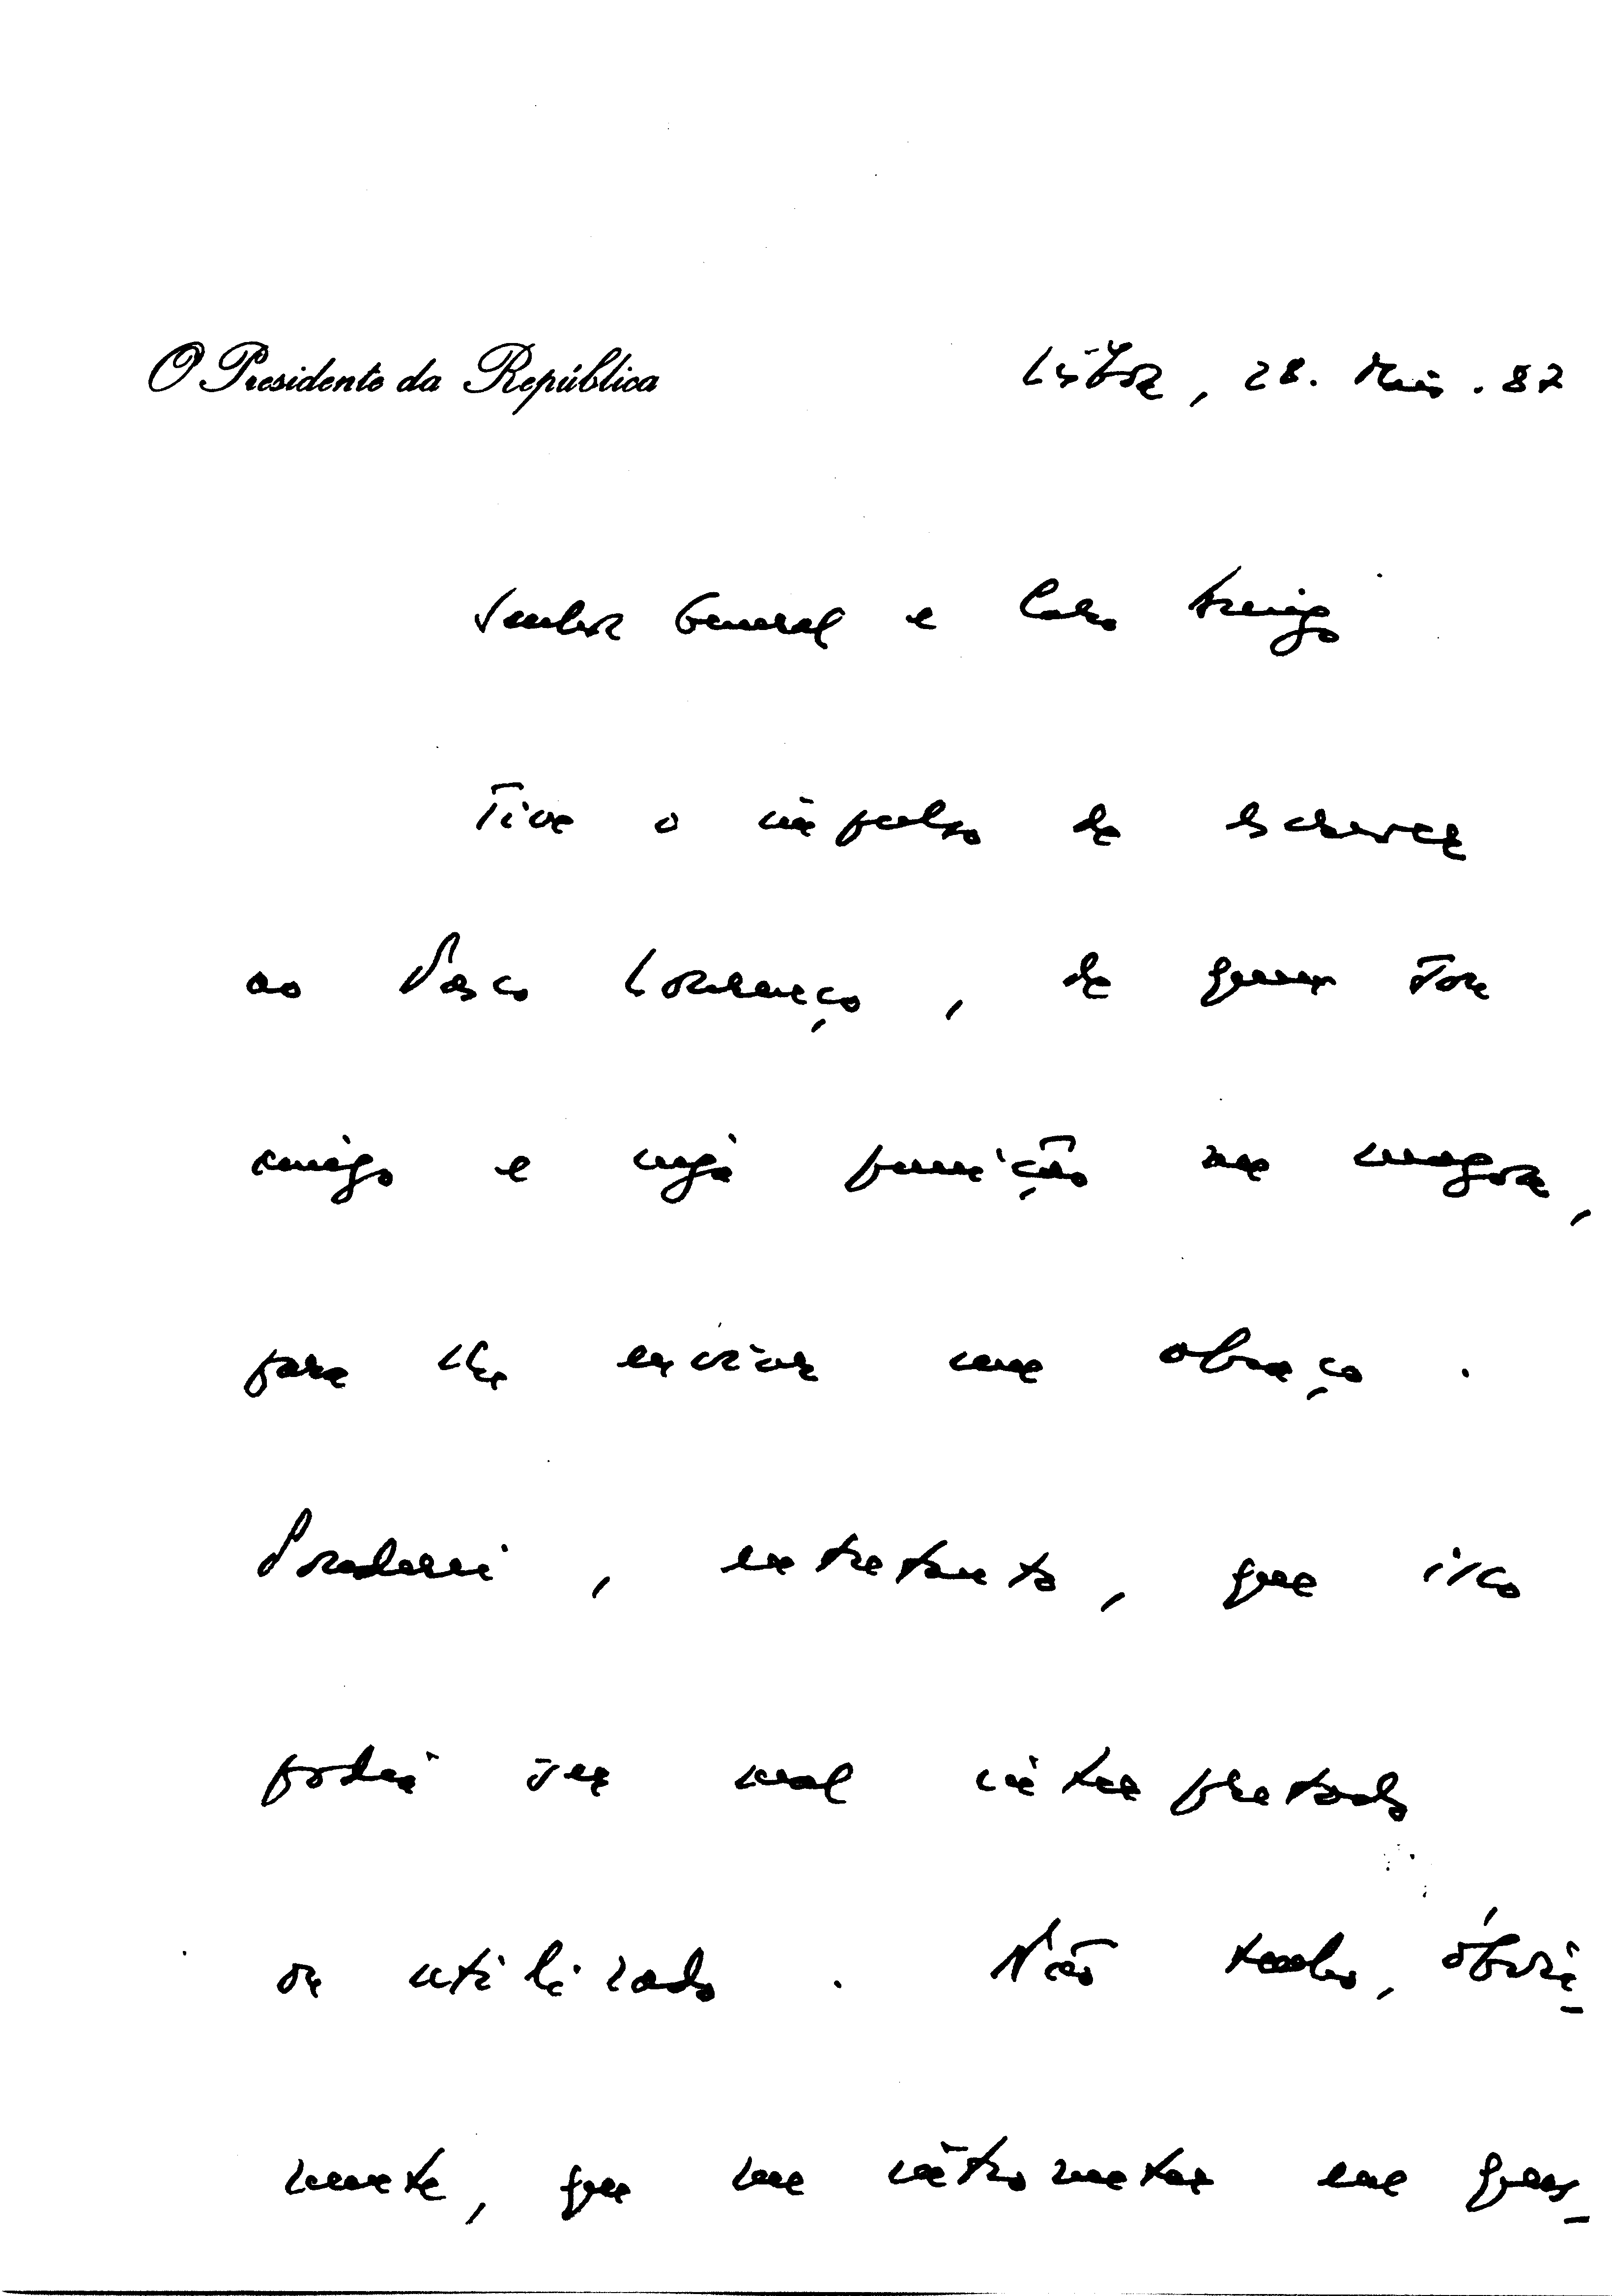 O Presidente da República
Lisboa, 28. Maio. 87
Senhor General e Caro Amigo
Tive o impulso de escrever
ao Vasco Lourenço, de quem sou
amigo e cuja punição me magoa,
para lhe enviar um abraço.
Ponderei, entretanto, que isso
podia ser mal interpretado
ou utilizado. Não tenho, óbvia_
mente, que me intrometer em ques_